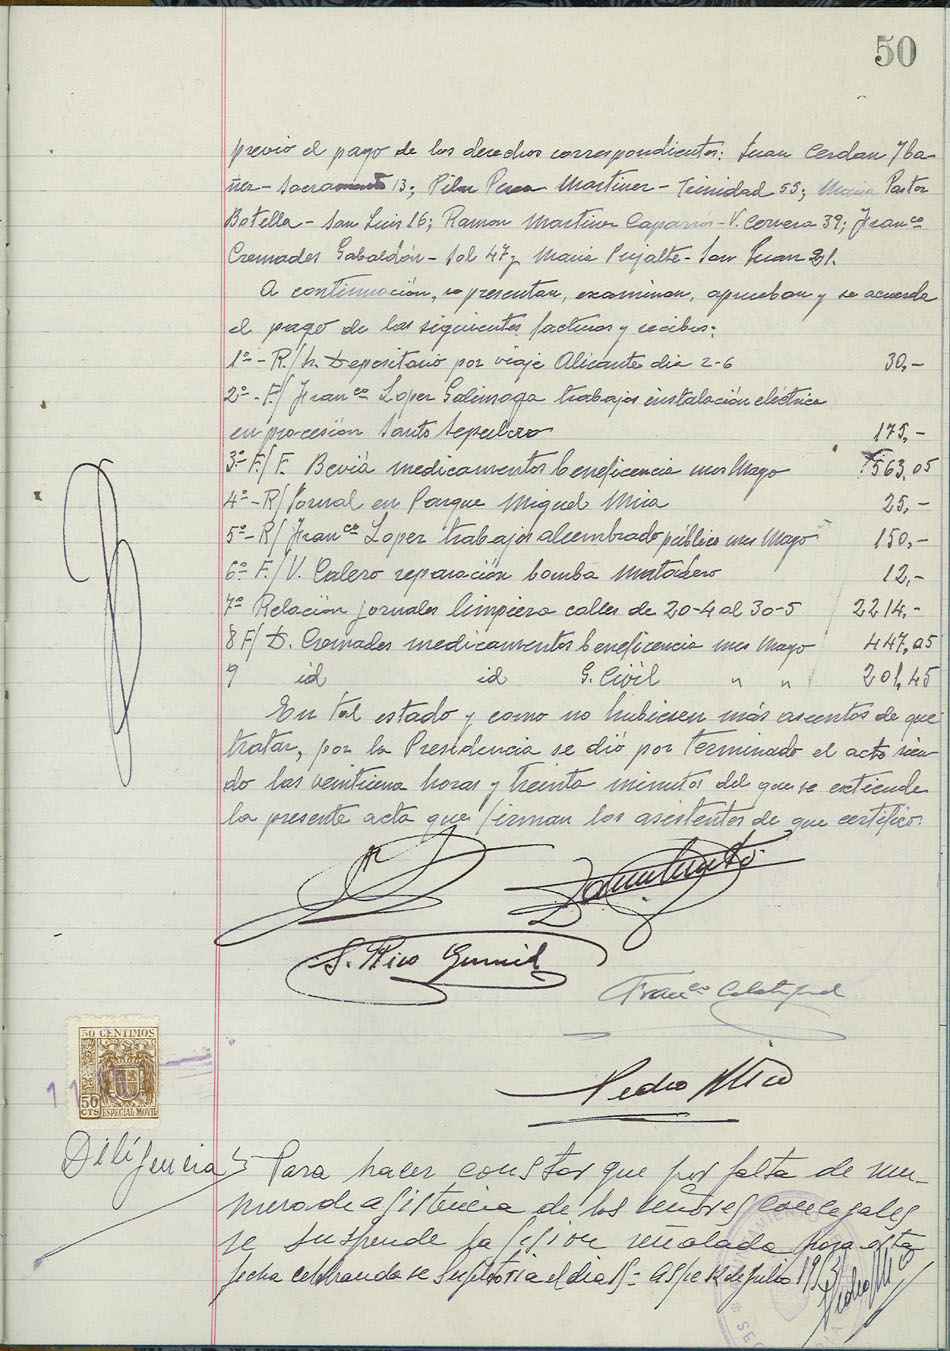 50
previo el pago de los derechos correspondientes: Juan Cerdan Yba-
ñez - Sacramento 13; Pilar Perea Martinez - Trinidad 55; Maria Pastor
Botella - San Luis 16; Ramon Martinez Caparrós - V. Cervera 39; Franco
Cremades Gabaldón - Sol 47 y Maria Pujalte - San Juan 21.
A continuación, se presentan, examinan, aprueban y se acuerda
el pago de las siguientes facturas y recibos:
1º - R/ h. Depositario por viaje Alicante dia 2-6 30,-
2º - F/ Franco Lopez Galinoga trabajos instalación eléctrica
en procesión Santo Sepulcro 175,-
3º - F/ F. Beviá medicamentos beneficencia mes Mayo 563,05
4º - R/ Jornal en Parque Miguel Mira 25,-
5º - R/ Franco Lopez trabajos alumbrado público mes Mayo 150,-
6º F/ V. Calero reparación bomba matadero 12,-
7º Relación jornales limpieza calles de 20-4 al 30-5 2214,-
8 F/ D. Cremades medicamentos beneficencia mes Mayo 447,05
9 id id G. Civil " " 201,45
En tal estado y como no hubiesen más asuntos de que
tratar, por la Presidencia se dió por terminado el acto sien-
do las veintiuna horas y treinta minutos del que se extiende
la presente acta que firman los asistentes de que certifico.
S. Rico
Franco
Pedro Mico
50 CENTIMOS
50 CTS ESPECIAL MOVIL
Diligencia Para hacer constar que por falta de nu-
mero de asistencia de los señores Concejales
se suspende la sesion señalada para esta
fecha celebrandose supletoria el dia 15 = Aspe 12 de Julio 1953
Pedro Mico